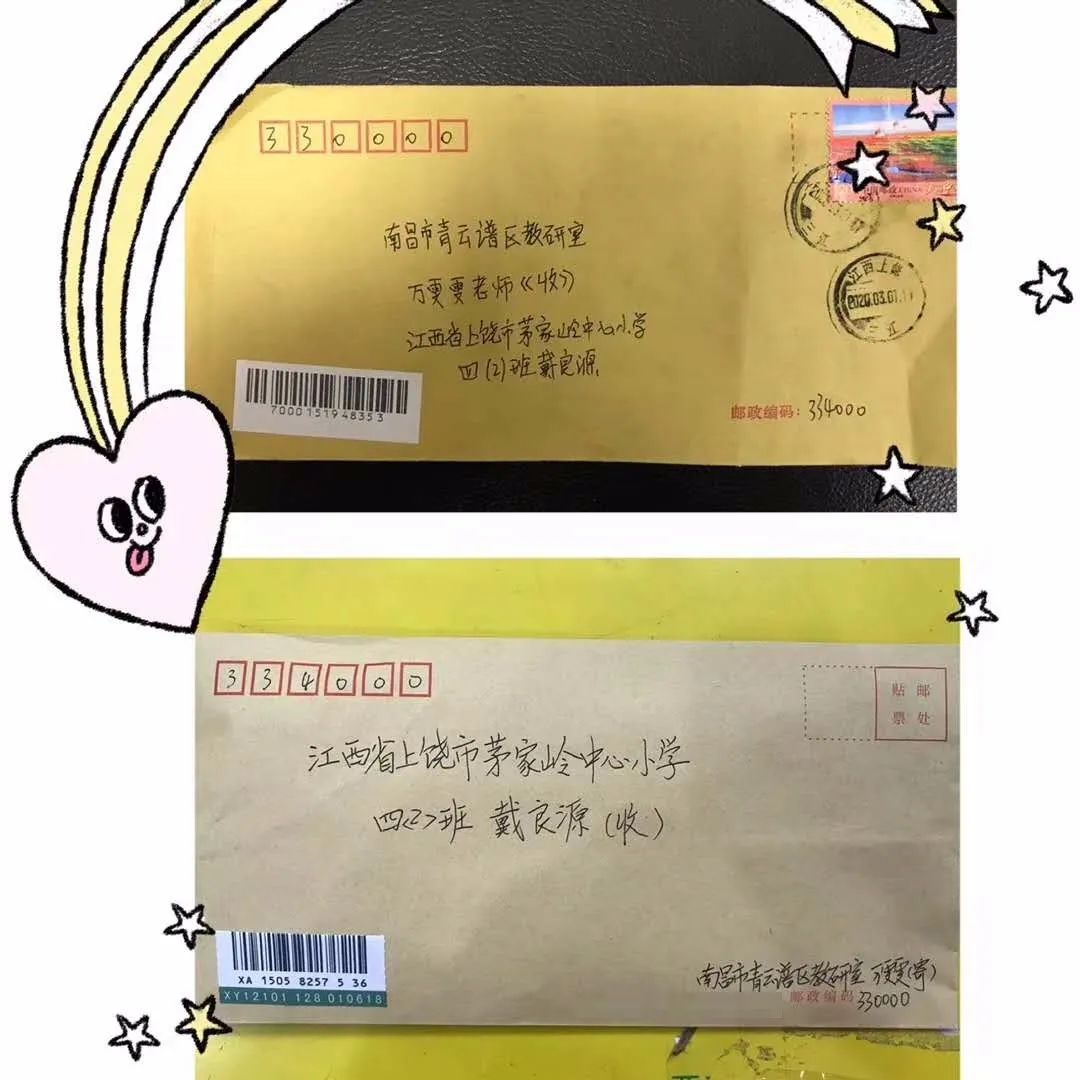 330000
南昌市青云谱区教研室
万雯雯老师《收》
江西省上饶市茅家岭中心小学
四(2)班戴良源
7000151948353
邮政编码：334000
江西上饶
2020.03.01.17
334000
贴邮
票处
江西省上饶市茅家岭中心小学
四<2>班 戴良源（收）
XA 1505 8257 5 36
XY12101 128 010618
南昌市青云谱区教研室
邮政编码 330000